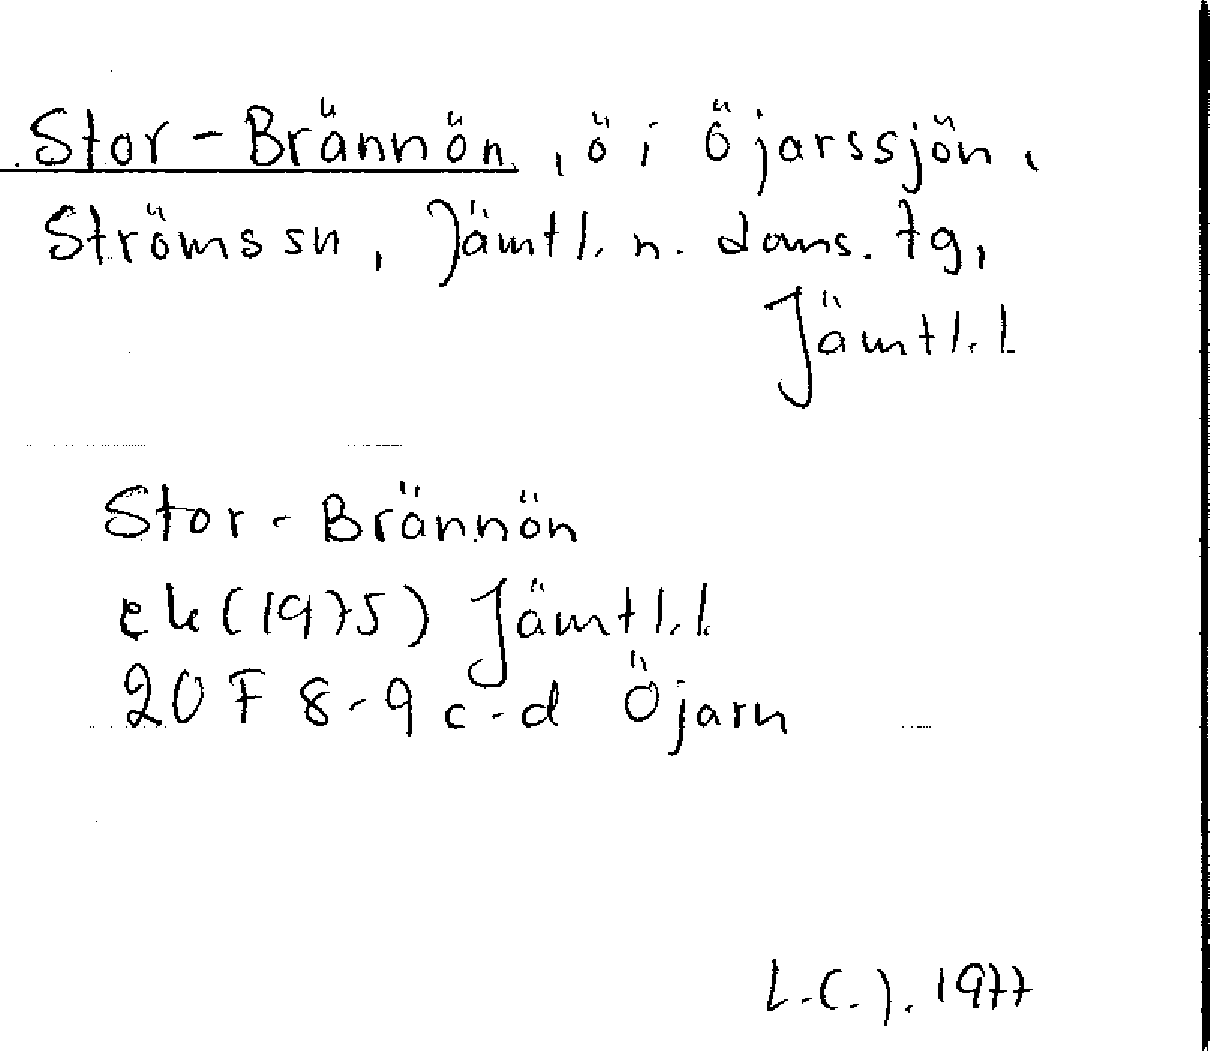 Stor-Brännön, ö i Öjarssjön,
Ströms sn, Jämtl. n. doms. tg,
Jämtl. l.
Stor-Brännön
ek (1975) Jämtl. l.
20 F 8-9 c-d Öjarn
L.C.J. 1977